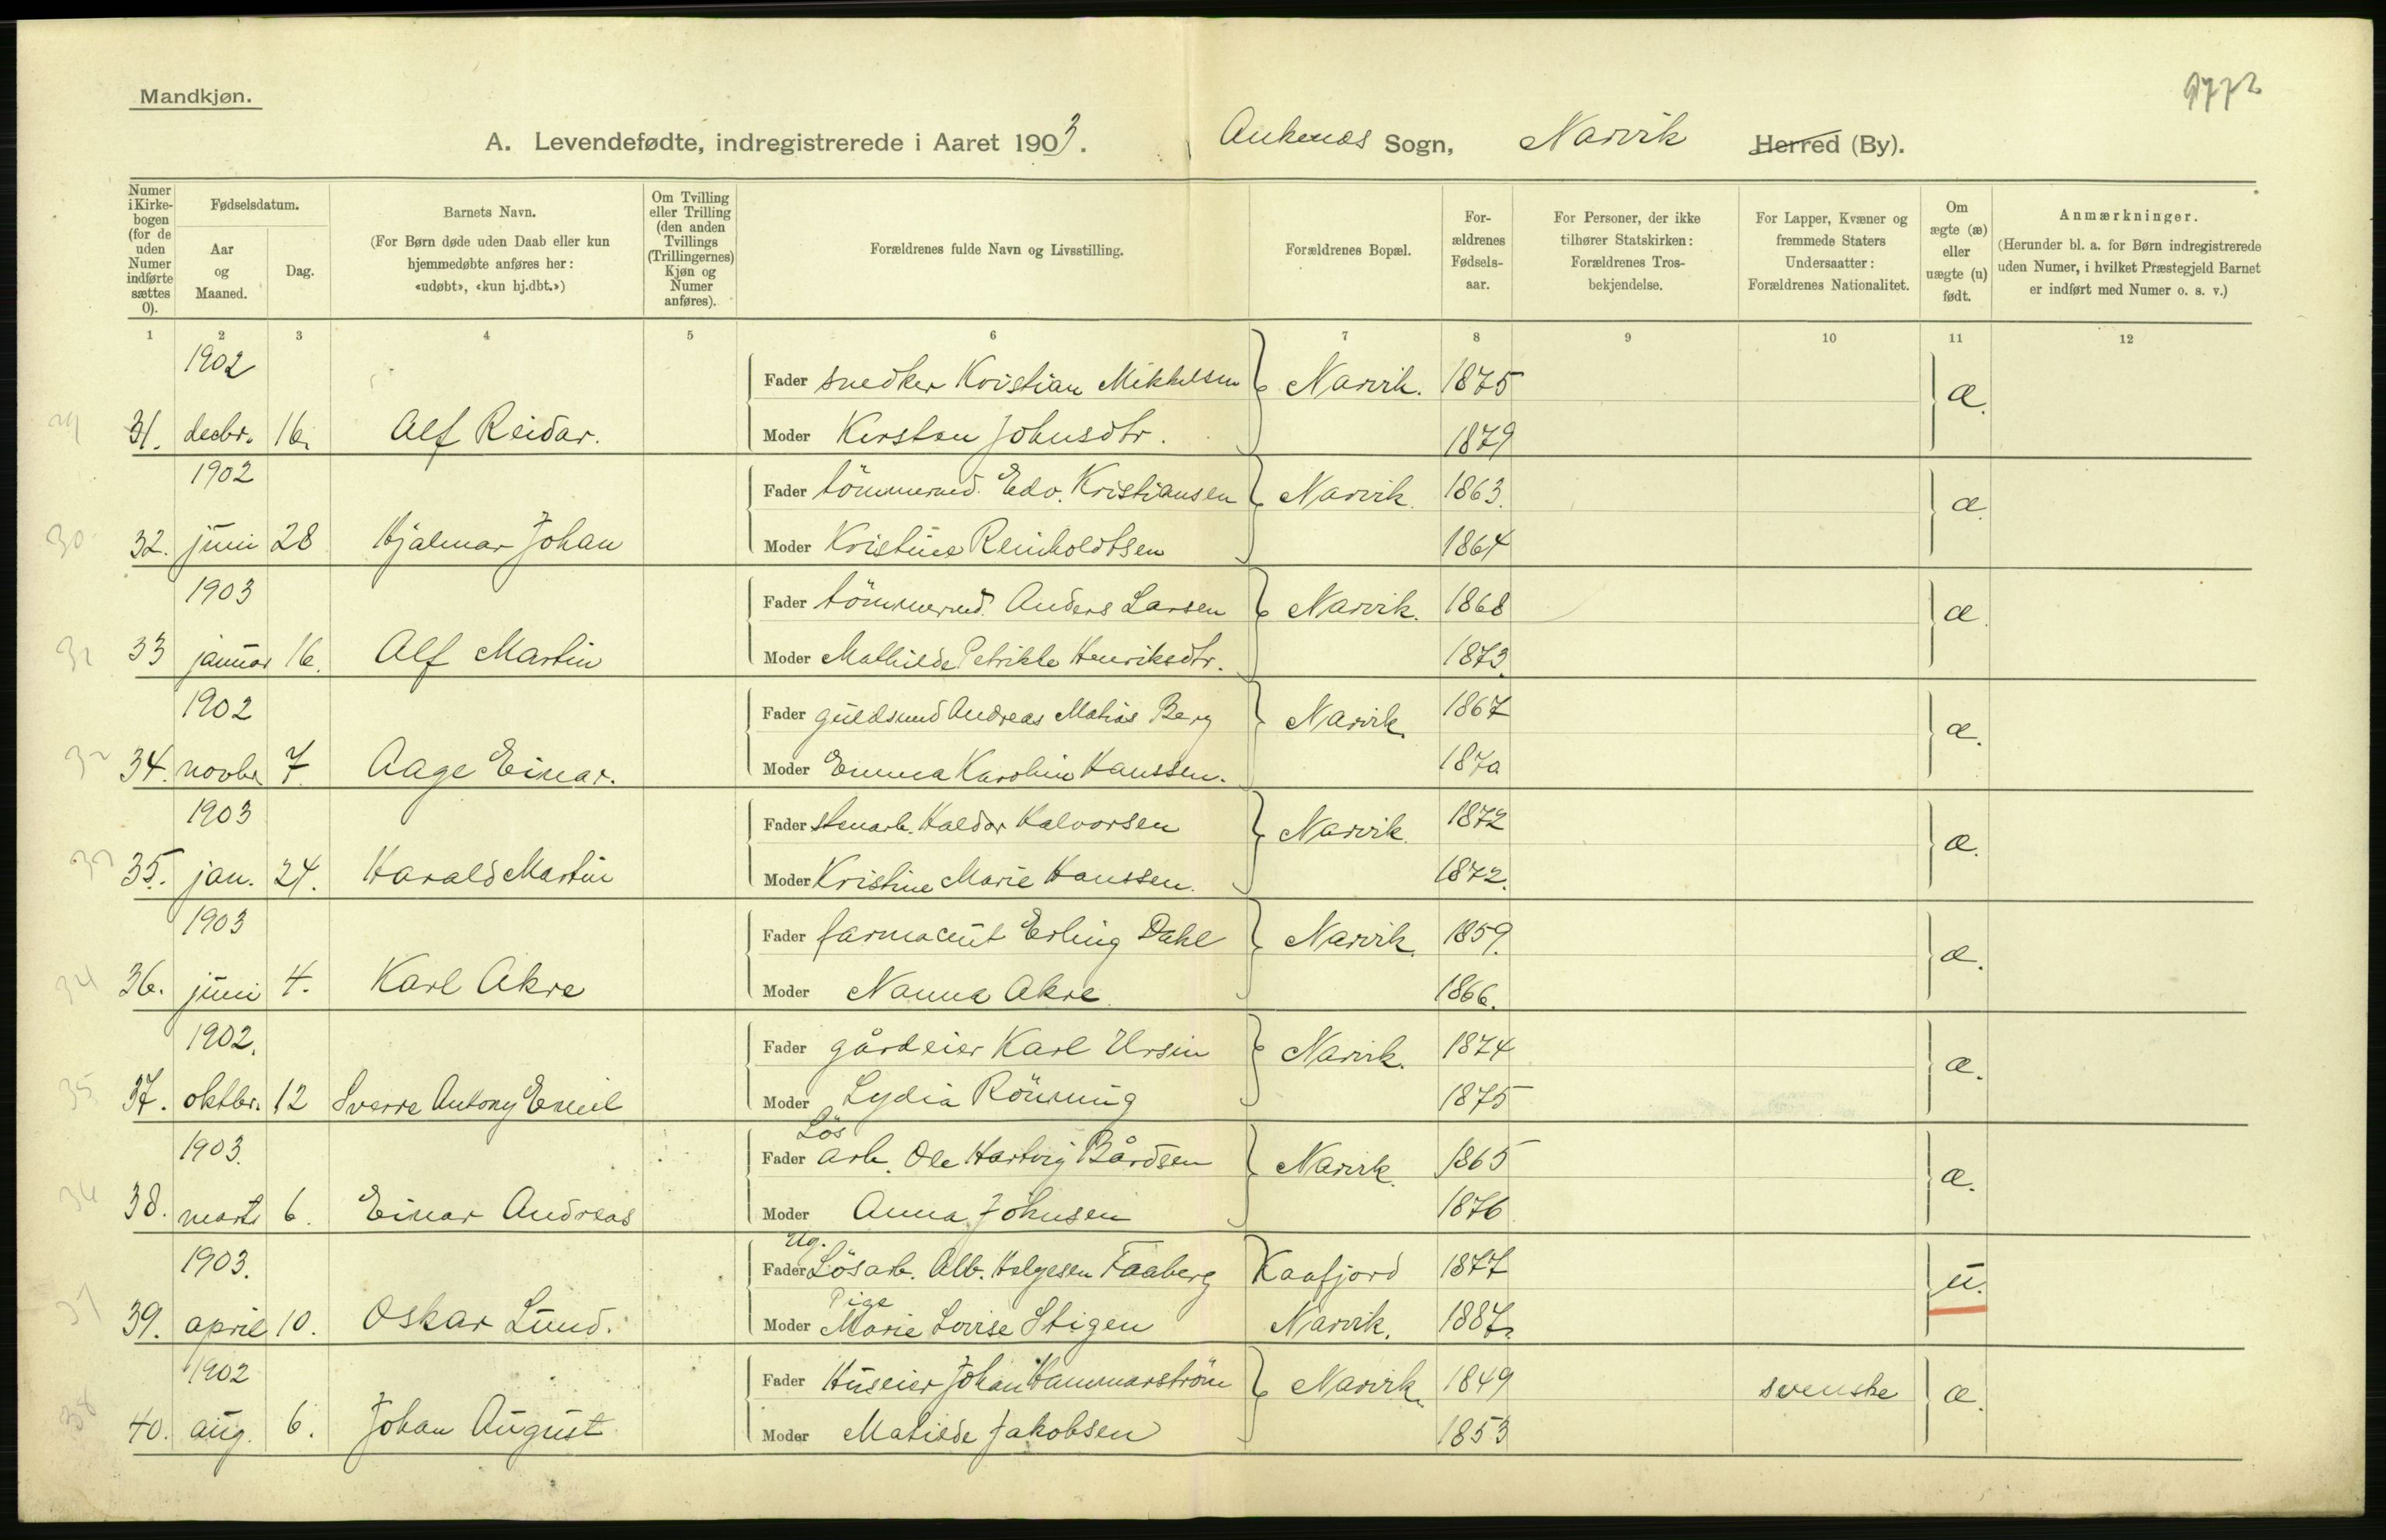 Mandkjøn.
9772
A. Levendefødte, indregistrerede i Aaret 1903. Ankenæs Sogn, Narvik Herred (By).
Numer i Kirke-bogen (for de uden Numer indførte sættes 0).
Fødselsdatum.
Aar og Maaned.
Dag.
Barnets Navn.
(For Børn døde uden Daab eller kun
hjemmedøbte anføres her:
«udøbt», «kun hj.dbt.»)
Om Tvilling eller Trilling (den anden Tvillings (Trillingernes) Kjøn og Numer anføres).
Forældrenes fulde Navn og Livsstilling.
Forældrenes Bopæl.
For-ældrenes Fødsels-aar.
For Personer, der ikke
tilhører Statskirken:
Forældrenes Tros-
bekjendelse.
For Lapper, Kvæner og
fremmede Staters
Undersaatter:
Forældrenes Nationalitet.
Om ægte (æ) eller uægte (u) født.
Anmærkninger.
(Herunder bl. a. for Børn indregistrerede
uden Numer, i hvilket Præstegjeld Barnet
er indført med Numer o. s. v.)
1 2 3 4 5 6 7 8 9 10 11 12
1902
Fader snedker Kristian Mikkelsen Narvik. 1875 æ.
29 31. decbr. 16. Alf Reidar. Moder Kirsten Johnsdtr. 1879
1902
Fader tömmermd. Edv. Kristiansen Narvik. 1863. æ.
30 32. juni 28 Hjalmar Johan Moder Kristine Reinholdtsen 1864
1903
Fader tömmermd. Anders Larsen Narvik. 1868 æ.
31 33 januar 16. Alf Martin Moder Mathilde Petrikke Henriksdtr. 1873.
1902
Fader guldsmed Andreas Matias Berg Narvik. 1867 æ.
32 34. novbr. 7. Aage Einar. Moder Emma Karoline Hanssen. 1870
1903
Fader stenarb. Haldor Halvorsen Narvik. 1872 æ.
33 35. jan. 24. Harald Martin Moder Kristine Marie Hanssen. 1872.
1903
Fader farmaceut Erling Dahl Narvik. 1859. æ.
34 36. juni 4. Karl Akre Moder Nanna Akre. 1866.
1902.
Fader gårdeier Karl Ursin Narvik. 1874 æ.
35 37. oktbr. 12 Sverre Antony Emil Moder Lydia Rönning 1875
1903. Lös
Fader arb. Ole Hartvig Bårdsen Narvik. 1865 æ.
36 38. marts 6. Einar Andreas Moder Anna Johnsen 1876
1903. Ug.
Fader Lösarb. Alb. Helgesen Faaberg Kaafjord 1877 u.
Pige
37 39. april 10. Oskar Lund. Moder Marie Lovise Stigen Narvik. 1887.
1902
Fader Huseier Johan Hammarström Narvik. 1849 svenske æ.
38 40. aug. 6. Johan August Moder Matilde Jakobsen 1853